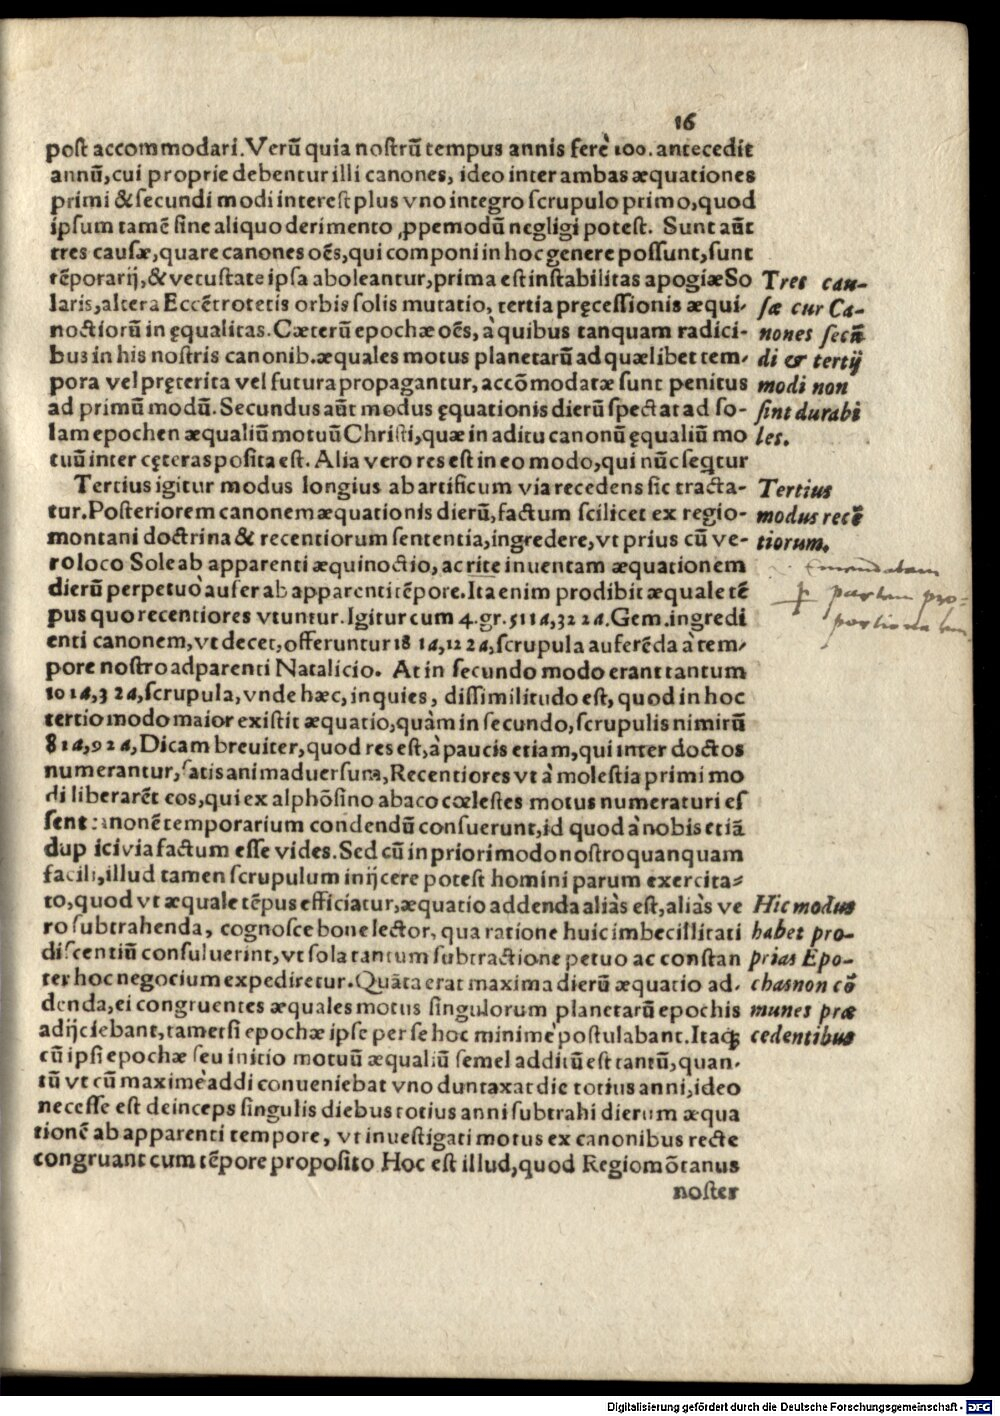 16
post accommodari. Verũ quia nostrũ tempus annis ferè 100. antecedit
annũ, cui proprie debentur illi canones, ideo inter ambas æquationes
primi & secundi modi interest plus vno integro scrupulo primo, quod
ipsum tamẽ sine aliquo derimento ꝓpemodũ negligi potest. Sunt aũt
tres causæ, quare canones oẽs, qui componi in hoc genere possunt, sunt
tẽporarij, & vetustate ipsa aboleantur, prima est instabilitas apogiæ So
laris, altera Eccẽtrotetis orbis solis mutatio, tertia pręcessionis æqui-
noctiorũ inęqualitas. Cæterũ epochæ oẽs, à quibus tanquam radici-
bus in his nostris canonib. æquales motus planetarũ ad quælibet tem-
pora vel pręterita vel futura propagantur, accõmodatæ sunt penitus
ad primũ modũ. Secundus aũt modus ęquationis dierũ spectat ad so-
lam epochen æqualiũ motuũ Christi, quæ in aditu canonũ ęqualiũ mo
tuũ inter cęteras posita est. Alia vero res est in eo modo, qui nũc seq̃tur
Tres cau-
sæ cur Ca-
nones secũ
di & tertij
modi non
sint durabi
les.
Tertius igitur modus longius ab artificum via recedens sic tracta-
tur. Posteriorem canonem æquationis dierũ, factum scilicet ex regio-
montani doctrina & recentiorum sententia, ingredere, vt prius cũ ve-
ro loco Solε ab apparenti æquinoctio, ac rite inuentam æquationem
dierũ perpetuò aufer ab apparenti tẽpore. Ita enim prodibit æquale tẽ
pus quo recentiores vtuntur. Igitur cum 4. gr. 51 1a, 32 2a. Gem. ingredi
enti canonem, vt decet, offeruntur 18 1a, 12 2a, scrupula auferẽda à tem-
pore nostro adparenti Natalicio. At in secundo modo erant tantum
10 1a, 3 2a, scrupula, vnde hæc, inquies, dissimilitudo est, quod in hoc
tertio modo maior existit æquatio, quàm in secundo, scrupulis nimirũ
8 1a, 9 2a, Dicam breuiter, quod res est, à paucis etiam, qui inter doctos
numerantur, satis animaduersum, Recentiores vt à molestia primi mo
di liberarẽt eos, qui ex alphõsino abaco cœlestes motus numeraturi es
sent canonẽ temporarium condendũ consuerunt, id quod à nobis etiã
duplici via factum esse vides. Sed cũ in priori modo nostro quanquam
facili, illud tamen scrupulum inijcere potest homini parum exercita-
to, quod vt æquale tẽpus efficiatur, æquatio addenda aliàs est, aliàs ve
ro subtrahenda, cognosce bone lector, qua ratione huic imbecillitati
discentiũ consuluerint, vt sola tantum subtractione petuo ac constan
ter hoc negocium expediretur. Quãta erat maxima dierũ æquatio ad-
denda, ei congruentes æquales motus singulorum planetarũ epochis
adijciebant, tametsi epochæ ipse per se hoc minimè postulabant. Itaq;
cũ ipsi epochæ seu initio motuũ æqualiũ semel additũ est tantũ, quan-
tũ vt cũ maximè addi conueniebat vno duntaxat die totius anni, ideo
necesse est deinceps singulis diebus totius anni subtrahi dierum æqua
tionẽ ab apparenti tempore, vt inuestigati motus ex canonibus recte
congruant cum tẽpore proposito Hoc est illud, quod Regiomõtanus
noster
Tertius
modus recẽ
tiorum.
Emendatam
partem pro-
portionalem
Hic modus
habet pro-
prias Epo-
chas non cõ
munes præ
cedentibus
Digitalisierung gefördert durch die Deutsche Forschungsgemeinschaft - DFG